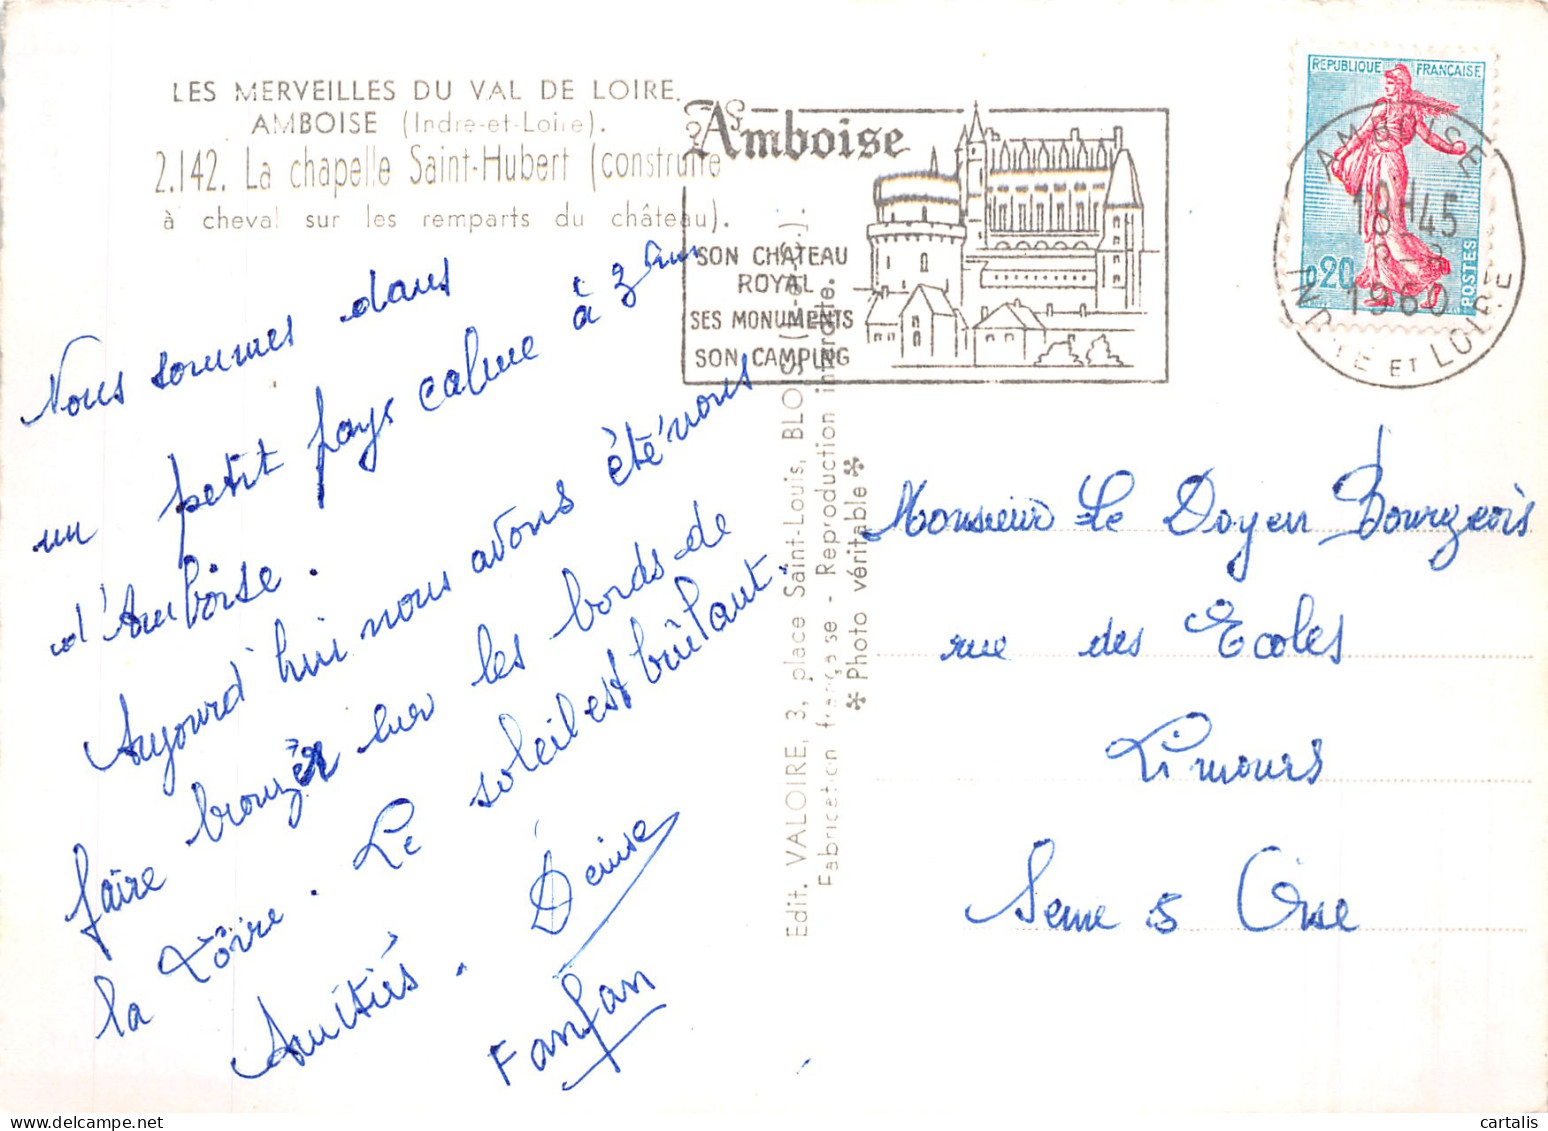 LES MERVEILLES DU VAL DE LOIRE.
AMBOISE (Indre-et-Loire).
2.142. La chapelle Saint-Hubert (construite
à cheval sur les remparts du château).
Nous sommes dans
un petit pays calme à 3 km
d'Amboise.
Aujourd'hui nous avons été nous
faire bronzer sur les bords de
la Loire. Le soleil est brûlant.
Amitiés. Denise
Fanfan
Amboise
SON CHATEAU
ROYAL
SES MONUMENTS
SON CAMPING
REPUBLIQUE FRANÇAISE
0,20
POSTES
AMBOISE
18H45
1960
INDRE ET LOIRE
Edit. VALOIRE, 3, place Saint-Louis, BLOIS
Fabrication française - Reproduction interdite.
✲ Photo véritable ✲
Monsieur Le Doyen Bourgeois
rue des Ecoles
Limours
Seine & Oise
cartalis
www.delcampe.net